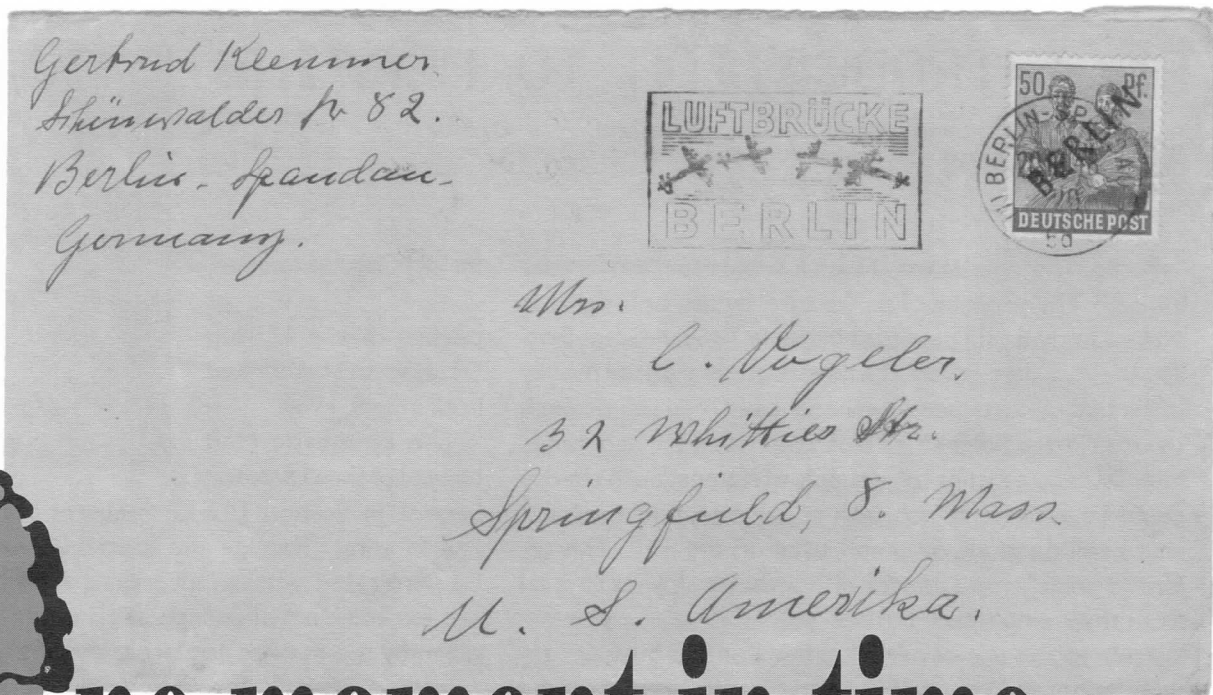 Gertrud Klemmer
Schönwalder Str 82.
Berlin - Spandau -
Germany.
LUFTBRÜCKE
BERLIN
50 Pf.
BERLIN
DEUTSCHE POST
BERLIN-SPA
Mrs.
C. Vogeler.
32 Whittier Str.
Springfield, 8. Mass.
U. S. Amerika.
ne moment in time